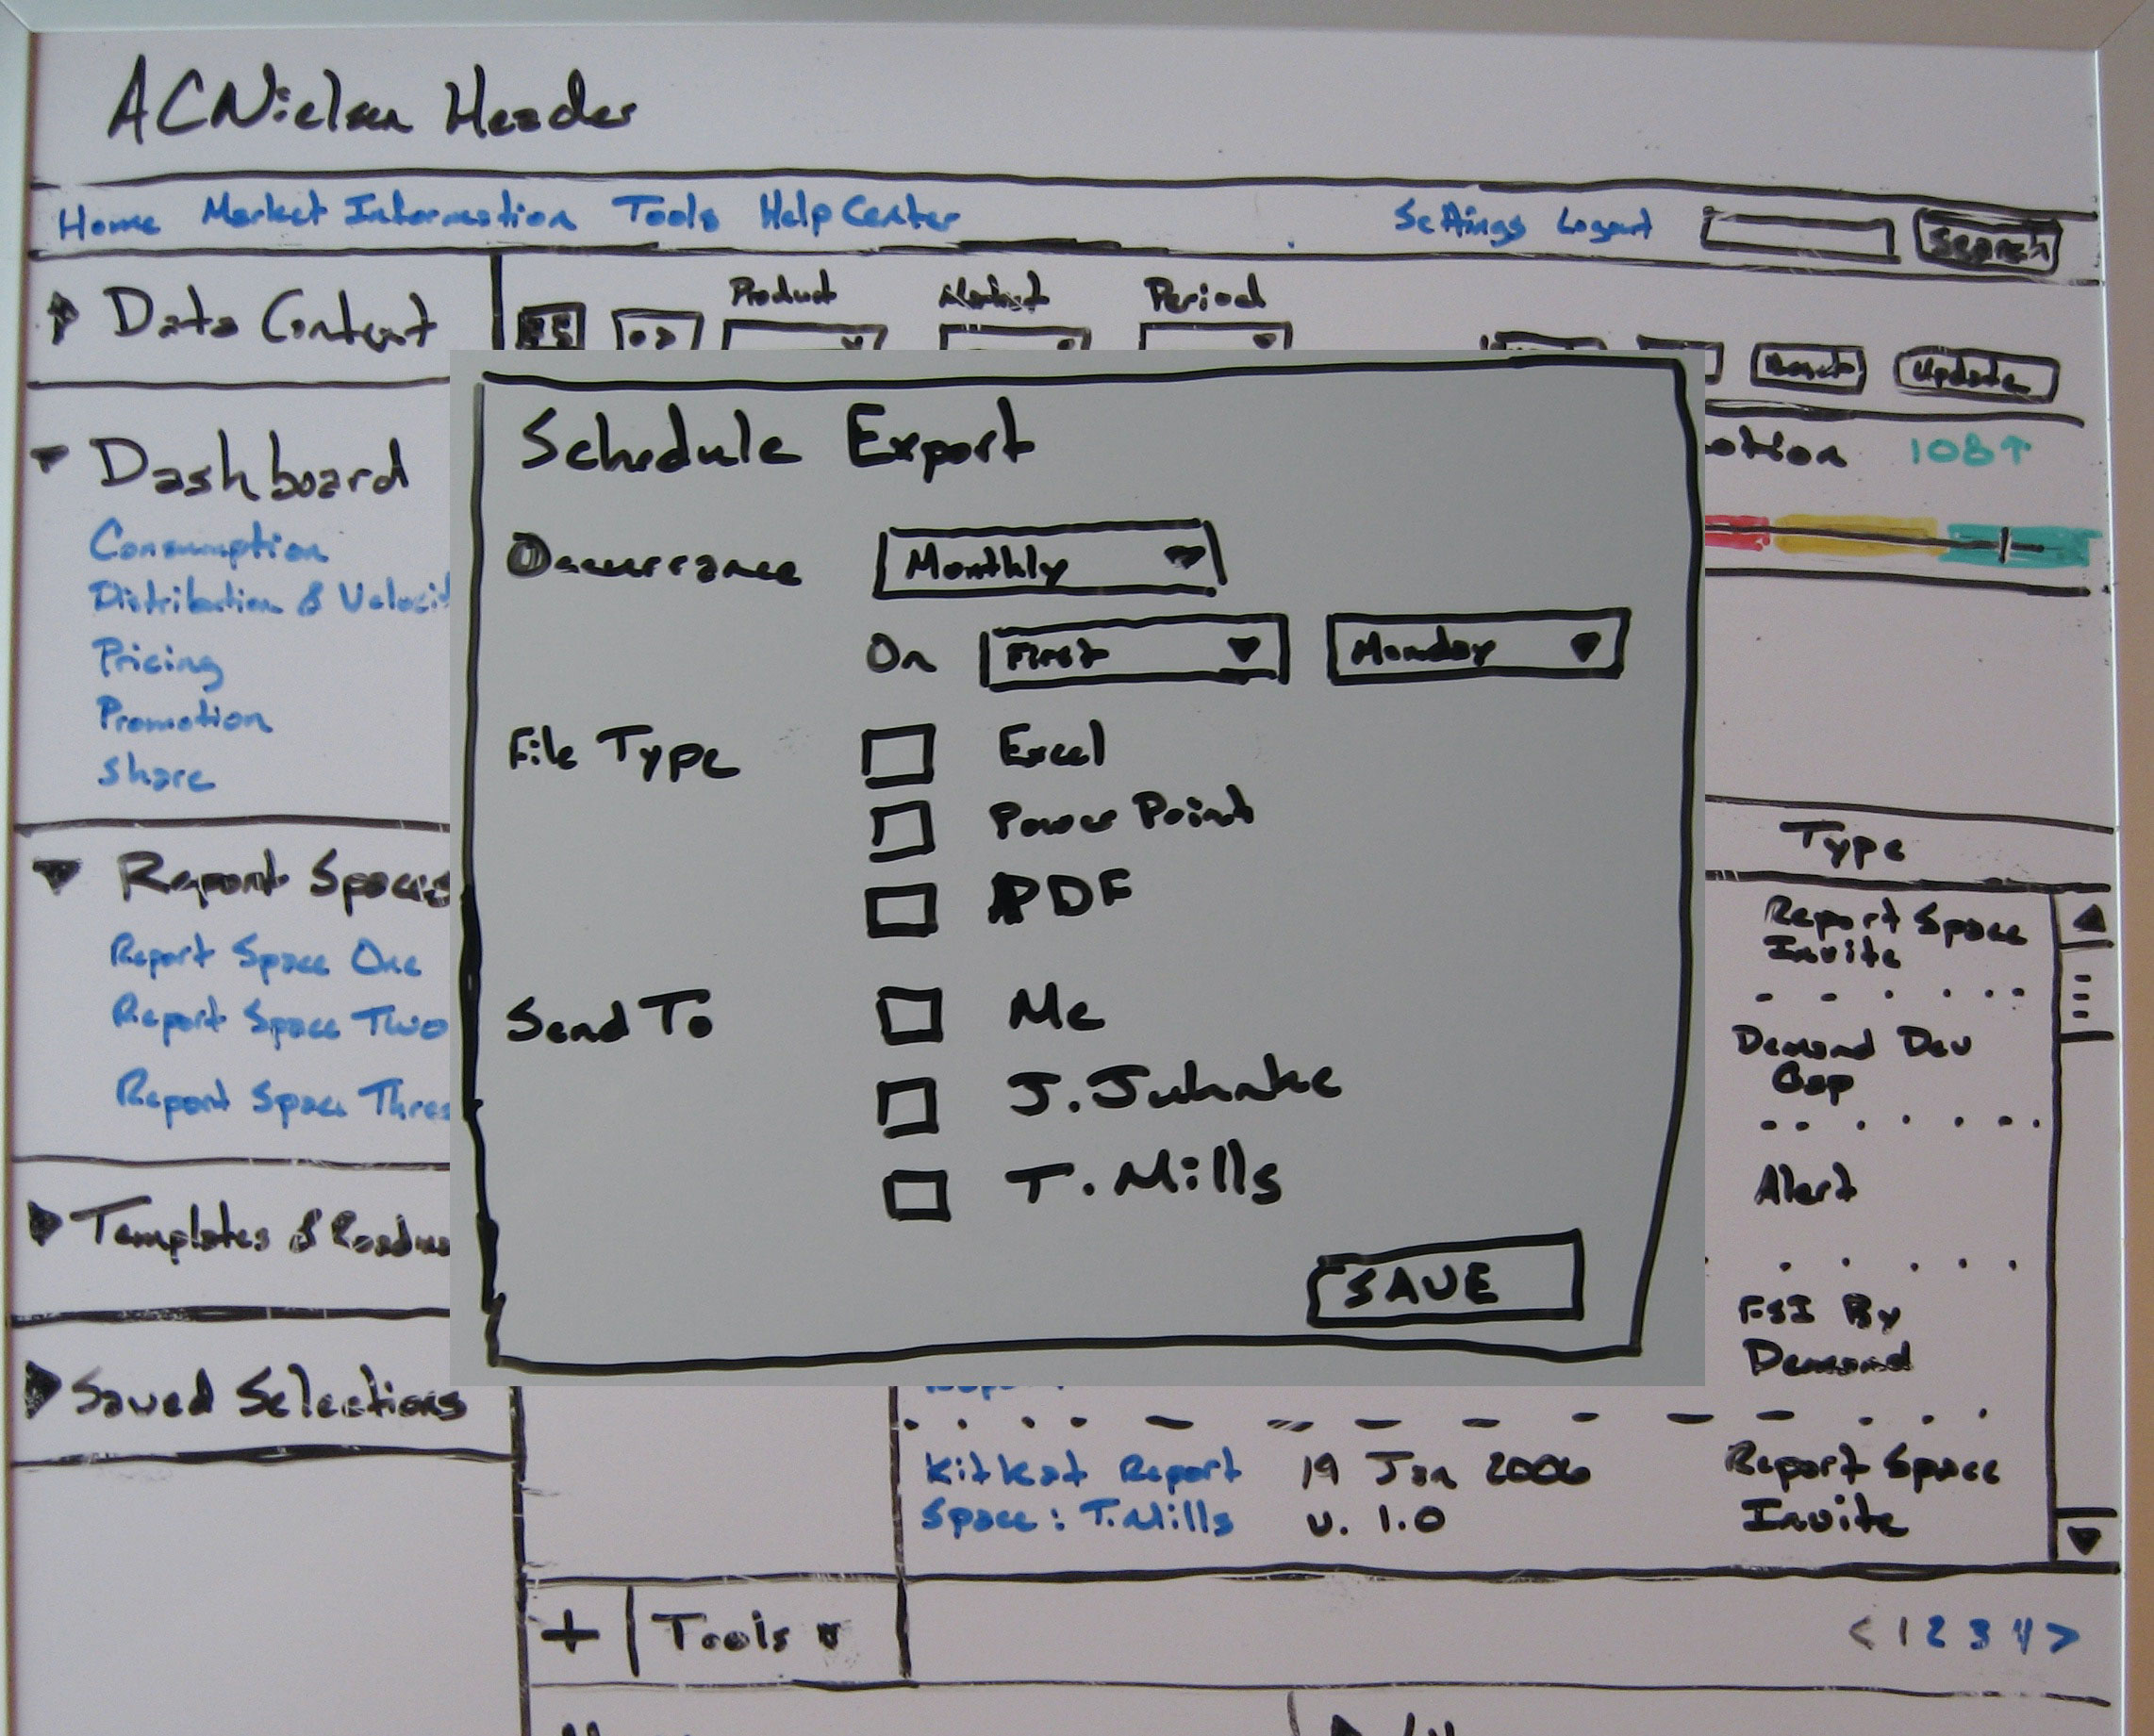 ACNielsen Header
Home Market Information Tools Help Center Settings Logout Search
Data Content
Product Market Period
Reset Update
Dashboard
Consumption
Distribution & Velocit
Pricing
Promotion
Share
otion 108↑
Report Spaces
Report Space One
Report Space Two
Report Space Three
Templates &
Saved Selections
Schedule Export
Occurrance Monthly
On First Monday
File Type Excel
Power Point
PDF
Send To Me
J. Juhnke
T. Mills
SAVE
Type
Report Space
Invite
Demand Dev
Gap
Alert
FSI By
Demand
KitKat Report 19 Jan 2006 Report Space
Space: T. Mills v. 1.0 Invite
+ Tools
< 1 2 3 4 >